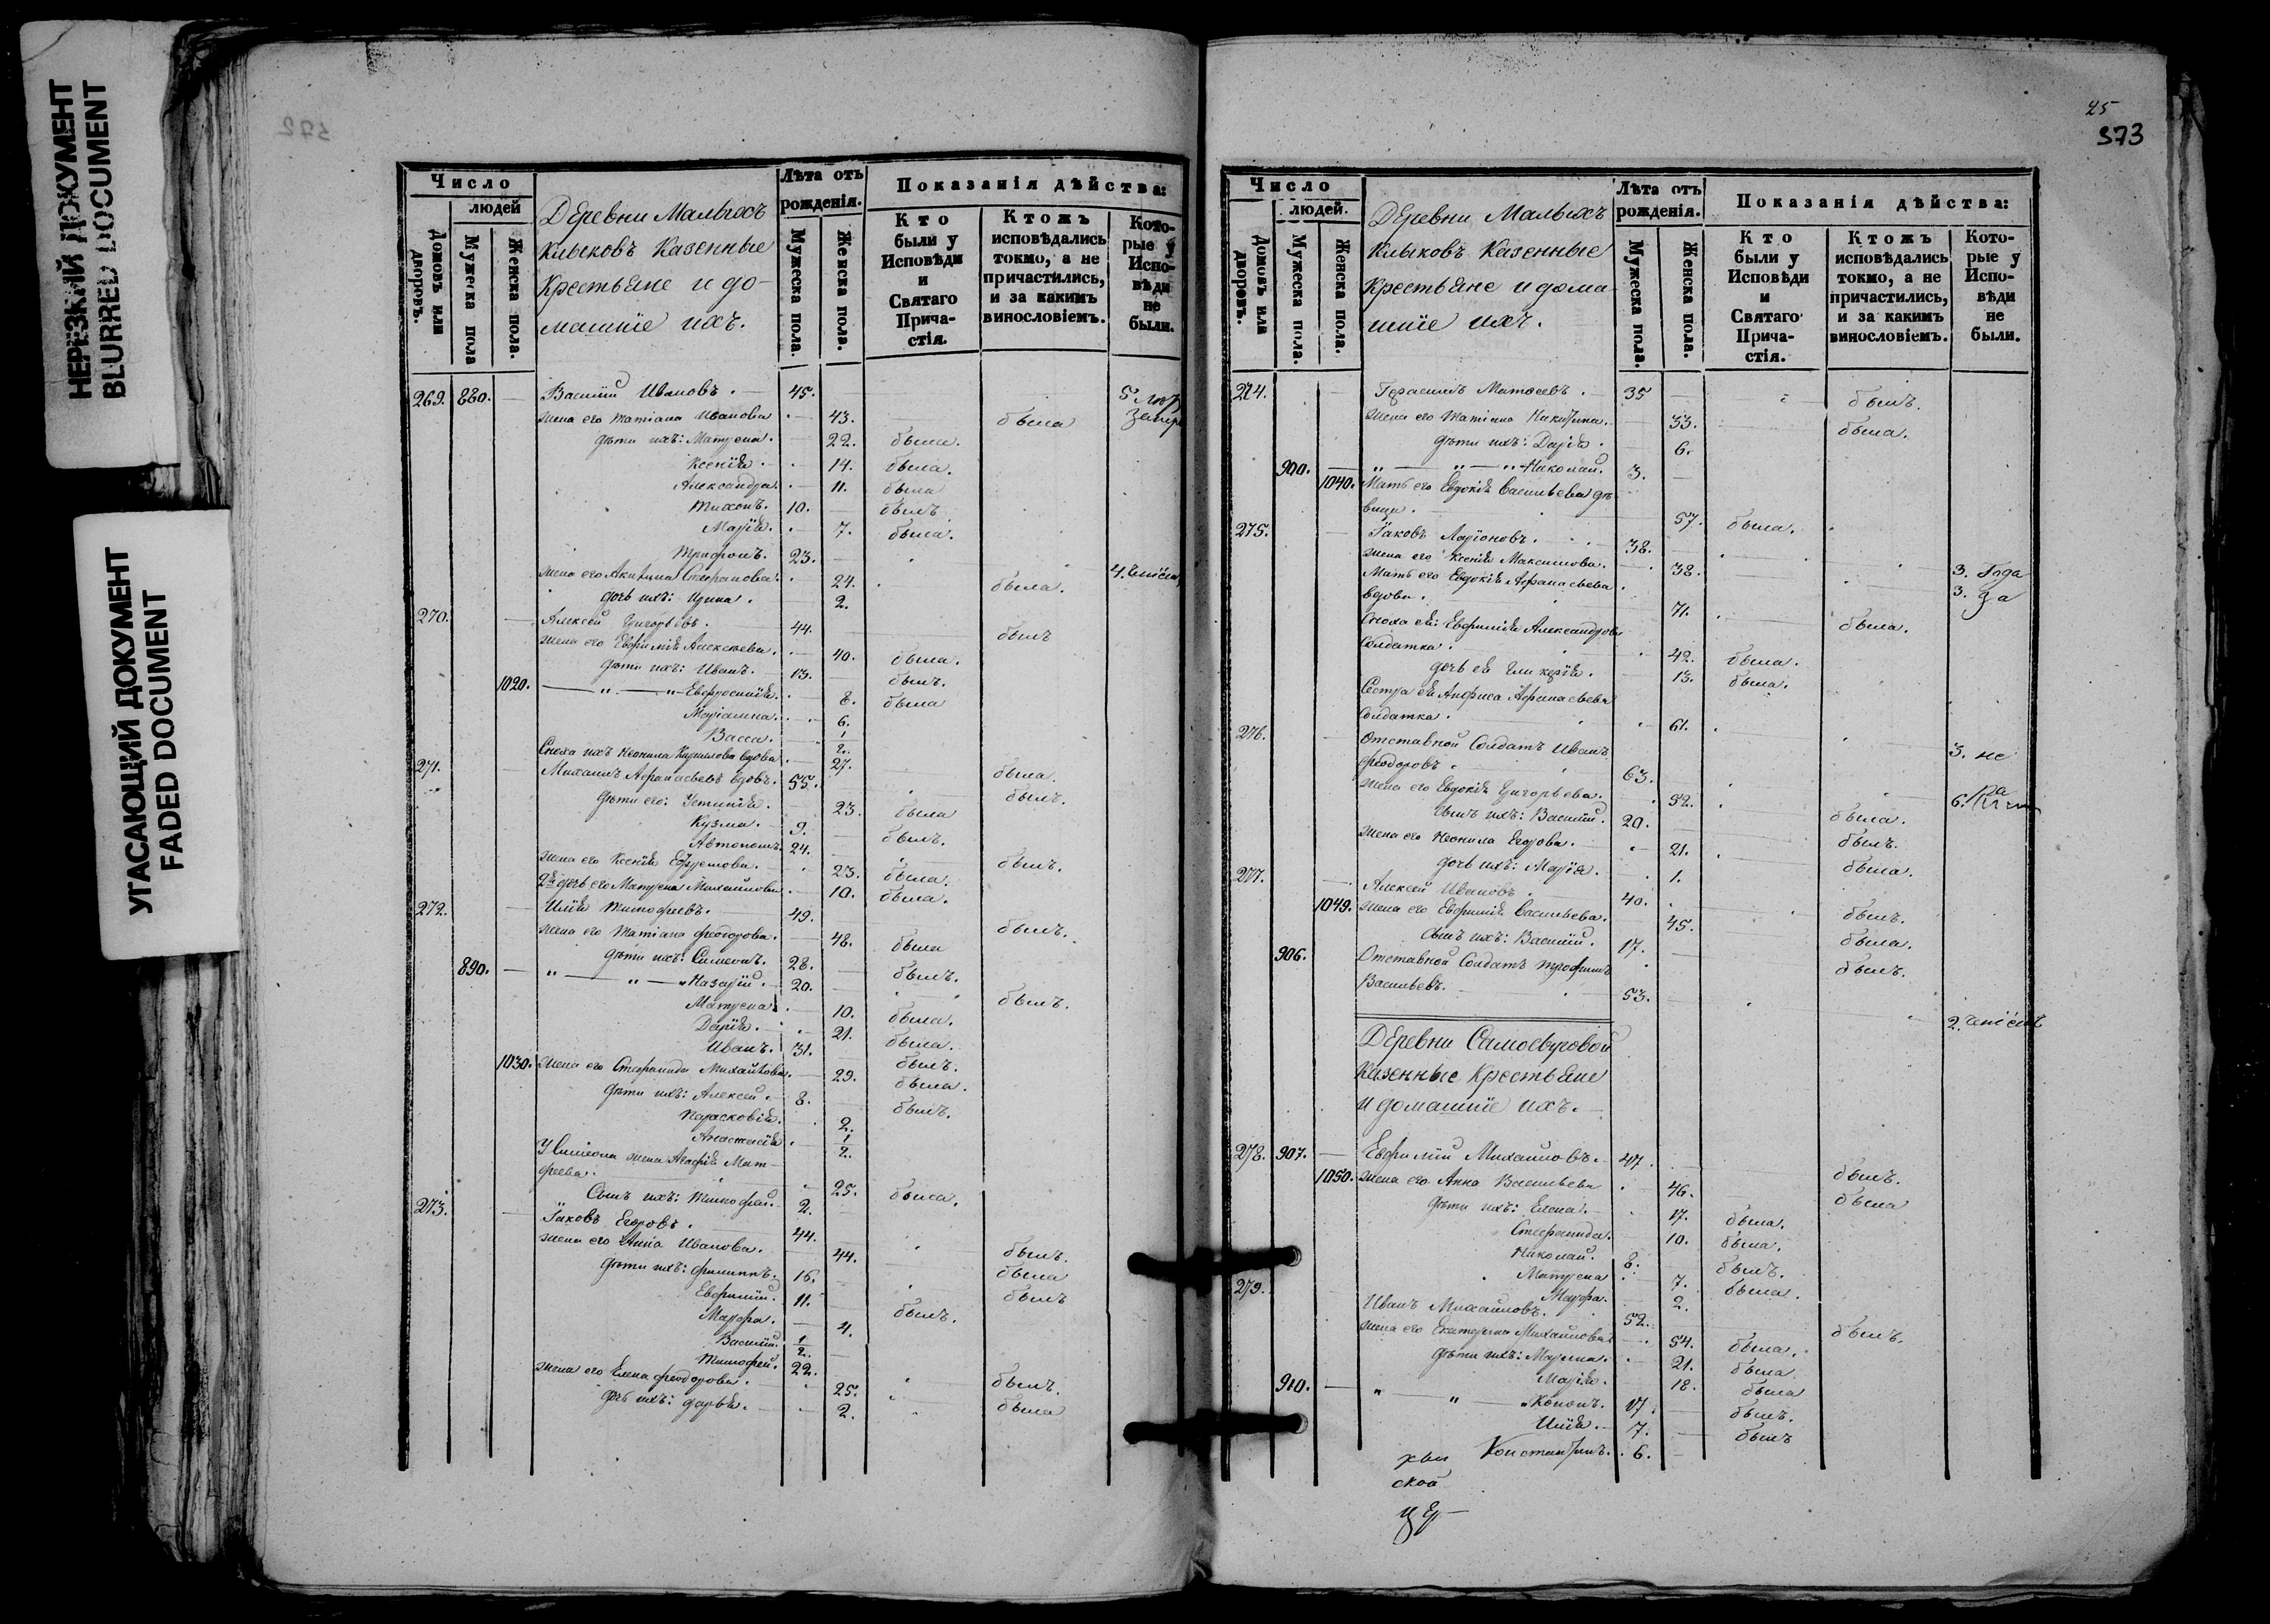 НЕРЕЗКИЙ ДОКУМЕНТ
BLURRED DOCUMENT
УГАСАЮЩИЙ ДОКУМЕНТ
FADED DOCUMENT
372
Число
людей
Домовъ или дворовъ.
Мужеска пола
Женска пола.
Деревни Малыхъ
Клыковъ Казенные
Крестьяне и до-
машніе ихъ.
Лѣта отъ рожденія.
Мужеска пола.
Женска пола.
Показанія дѣйства:
Кто были у Исповѣди и Святаго Прича-стія.
Ктожъ исповѣдались токмо, а не причастились, и за какимъ винословіемъ.
Кото-рые у Испо-вѣди не были.
269. 880. — Василій Ивановъ. 45.
жена его Татіана Иванова 43. была
дѣти ихъ: Матрена. 22. была.
Ксенія. 14. была.
Александра. 11. была
Тихонъ. 10. былъ
Марія. 7. была.
Трифонъ. 23.
жена его Акилина Стефанова. 24. была.
дочь ихъ: Ирина. 2.
270. — Алексей Григорьевъ. 44. былъ
жена его Евфимія Алексѣева. 40. была.
дѣти ихъ: Иванъ. 13. былъ.
1020. — " — " Евфросинія. 8. была
Маріамна. 6.
Васса. 1/2.
Сноха ихъ Неонила Кирилова вдова 27. была.
271. Михаилъ Афанасьевъ вдовъ. 55. былъ.
дѣти его: Устинія. 23. была
Кузма. 9. былъ.
Автономъ. 24. былъ.
жена его Ксенія Ефремова. 23. была.
2я дочь его Матрена Михайлова 10. была.
272. — Илія Тимофеевъ. 49. былъ.
жена его Татіана Феодорова. 48. была
дѣти ихъ: Симеонъ. 28. былъ.
890. — " — " Назарій. 20. былъ.
Матрена. 10. была.
Дарія. 21. была.
Иванъ. 31. былъ.
1030. жена его Стефанида Михайлова. 29. была.
дѣти ихъ: Алексей. 8. былъ.
Парасковія. 2.
Анастасія 1/2.
У Симеона жена Агафія Мат-
феева. 25. была.
Сынъ ихъ: Тимофей. 2.
273. — Іаковъ Егоровъ. 44. былъ.
жена его Анна Иванова. 44. была
дѣти ихъ: Филиппъ. 16. былъ
Евфимій. 11. былъ.
Марфа. 4.
Василій. 1/2.
Тимофей. 22. былъ.
жена его Елена Феодорова. 25. была
дочь ихъ: Дарья. 2.
25
373
Число
людей.
Домовъ или дворовъ.
Мужеска пола.
Женска пола.
Деревни Малыхъ
Клыковъ Казенные
Крестьяне и дома-
шніе ихъ.
Лѣта отъ рожденія.
Мужеска пола.
Женска пола.
Показанія дѣйства:
Кто были у Исповѣди и Святаго Прича-стія.
Ктожъ исповѣдались токмо, а не причастились, и за какимъ винословіемъ.
Кото-рые у Испо-вѣди не были.
274. — Герасимъ Матвеевъ. 35 былъ.
жена его Татіана Никитина. 33. была.
дѣти ихъ: Дарія. 6.
900. — " — " Николай. 3.
1040. Мать его Евдокія Васильева дѣ-
вица. 57. была.
275. — Іаковъ Ларіоновъ. 38.
жена его Ксенія Максимова. 38. 3. года
Мать его Евдокія Афанасьева 3. за
вдова. 71. была.
Сноха ея: Евфимія Александрова
Солдатка. 42. была.
дочь ея Гликерія. 13. была.
Сестра ея Анфиса Афанасьева
Солдатка. 61. 3. не
276. — Отставной Солдатъ Иванъ
Феодоровъ. 63.
жена его Евдокія Григорьева. 52. была.
Сынъ ихъ: Василій. 20. былъ.
жена его Неонила Егорова. 21. была.
дочь ихъ: Марія. 1.
277. — Алексей Ивановъ. 40. былъ.
1049. жена его Евфимія Васильева. 45. была.
Сынъ ихъ: Василій. 17. былъ.
906. Отставной Солдатъ Трофимъ
Васильевъ. 53.
Деревни Самосвуровой
Казенные Крестьяне
и домашніе ихъ.
278. 907. — Евфимій Михайловъ. 47. былъ.
1050. жена его Анна Васильева 46. была
дѣти ихъ: Елена. 17. была.
Стефанида. 10. была.
Николай. 8. былъ.
Матрена 7. была.
Марфа. 2.
279. Иванъ Михайловъ. 52. былъ.
жена его Екатерина Михайлова 54. была.
дѣти ихъ: Марина. 21. была.
Марія. 18. была
910. — " — " Кононъ. 17. былъ.
Илія. 7. былъ
Константинъ. 6.
ской